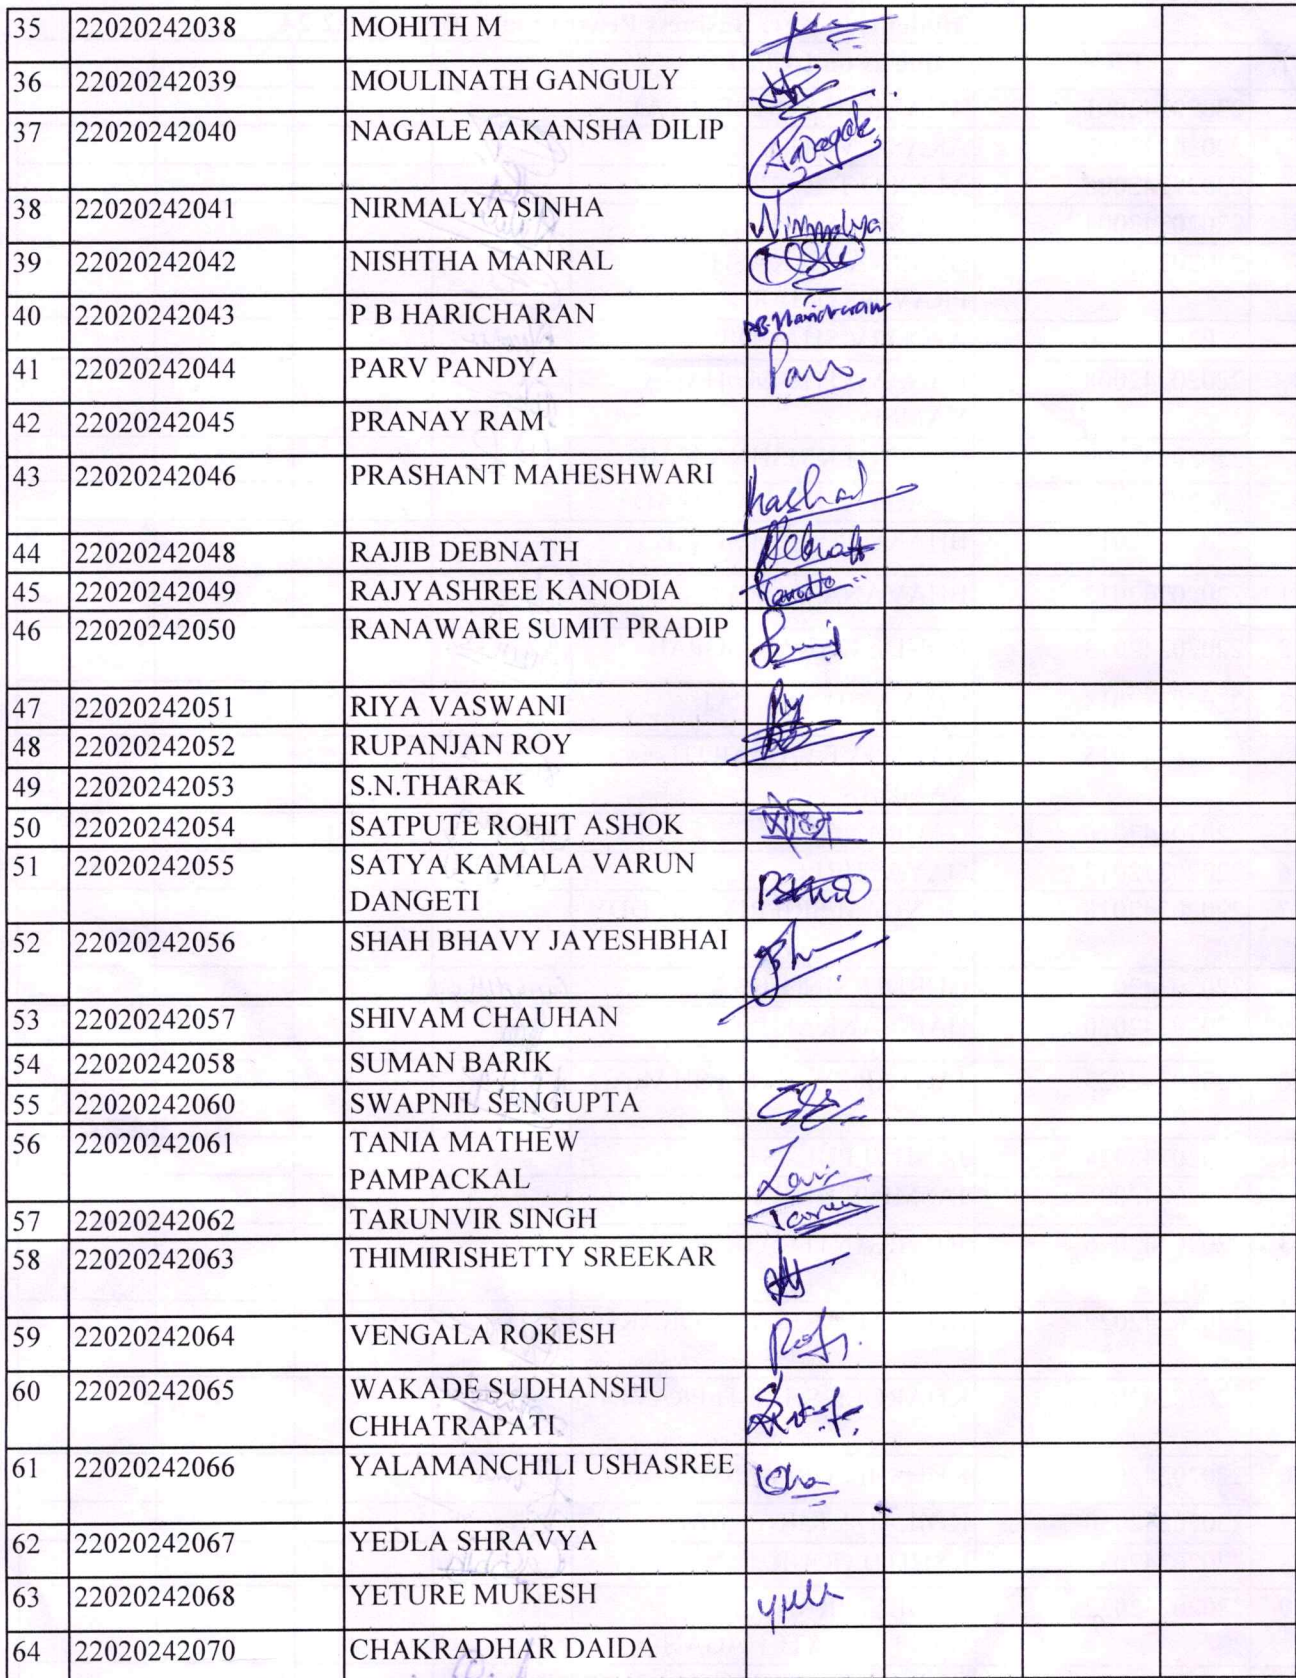 35 22020242038 MOHITH M
36 22020242039 MOULINATH GANGULY
37 22020242040 NAGALE AAKANSHA DILIP Nagale
38 22020242041 NIRMALYA SINHA Nirmalya
39 22020242042 NISHTHA MANRAL
40 22020242043 P B HARICHARAN P.B. Haricharan
41 22020242044 PARV PANDYA Parv
42 22020242045 PRANAY RAM
43 22020242046 PRASHANT MAHESHWARI
44 22020242048 RAJIB DEBNATH Debnath
45 22020242049 RAJYASHREE KANODIA
46 22020242050 RANAWARE SUMIT PRADIP Sumit
47 22020242051 RIYA VASWANI
48 22020242052 RUPANJAN ROY
49 22020242053 S.N.THARAK
50 22020242054 SATPUTE ROHIT ASHOK
51 22020242055 SATYA KAMALA VARUN
DANGETI
52 22020242056 SHAH BHAVY JAYESHBHAI
53 22020242057 SHIVAM CHAUHAN
54 22020242058 SUMAN BARIK
55 22020242060 SWAPNIL SENGUPTA
56 22020242061 TANIA MATHEW
PAMPACKAL
57 22020242062 TARUNVIR SINGH Tarun
58 22020242063 THIMIRISHETTY SREEKAR
59 22020242064 VENGALA ROKESH
60 22020242065 WAKADE SUDHANSHU
CHHATRAPATI
61 22020242066 YALAMANCHILI USHASREE Usha
62 22020242067 YEDLA SHRAVYA
63 22020242068 YETURE MUKESH
64 22020242070 CHAKRADHAR DAIDA